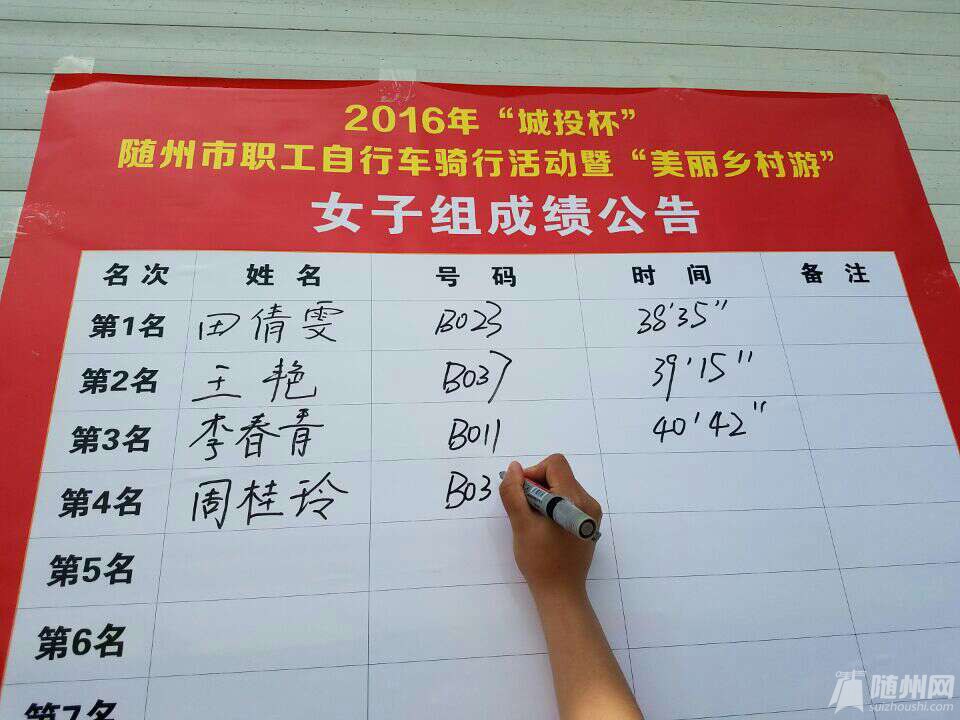 2016年“城投杯”
随州市职工自行车骑行活动暨“美丽乡村游”
女子组成绩公告
名次 姓名 号码 时间 备注
第1名 田倩雯 B023 38'35"
第2名 王艳 B037 39'15"
第3名 李春青 B011 40'42"
第4名 周桂玲 B03
第5名
第6名
第7名
随州网
suizhoushi.com